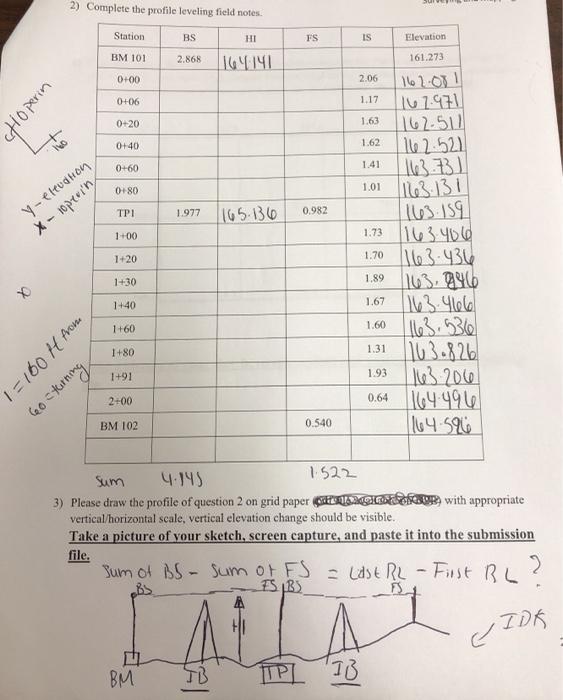 2) Complete the profile leveling field notes.
Station BS HI FS IS Elevation
BM 101 2.868 164.141 161.273
0+00 2.06 162.081
0+06 1.17 162.971
0+20 1.63 162.511
0+40 1.62 162.521
0+60 1.41 163.731
0+80 1.01 163.131
TP1 1.977 165.136 0.982 163.159
1+00 1.73 163.406
1+20 1.70 163.436
1+30 1.89 163.246
1+40 1.67 163.466
1+60 1.60 163.536
1+80 1.31 163.826
1+91 1.93 163.206
2+00 0.64 164.496
BM 102 0.540 164.596
Sum 4.845 1.522
y-elevation
x- 10perin
1=100 ft from
60=turning
3) Please draw the profile of question 2 on grid paper with appropriate
vertical/horizontal scale, vertical elevation change should be visible.
Take a picture of your sketch, screen capture, and paste it into the submission
file.
Sum of BS - Sum of FS = Last RL - First RL ?
BS FS BS FS
IDK
BM IB TP1 IB